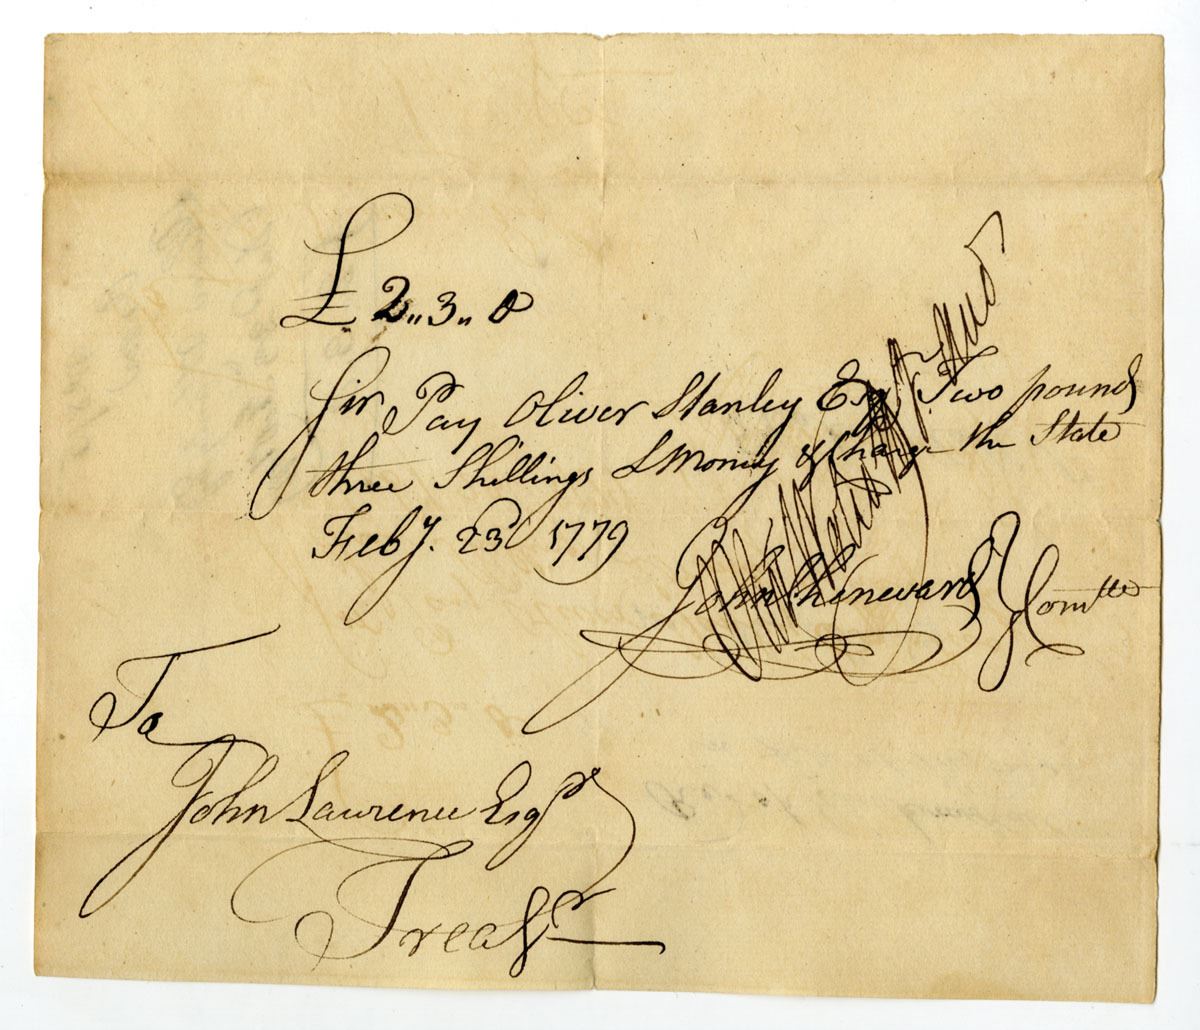 £ 2,, 3,, 0
Sir Pay Oliver Stanley Esqr. Two pounds
three Shillings LMoney & Charge the State
Feby. 23d 1779
John Chenevard } Comtte
To
John Lawrence Esqr
Treasr